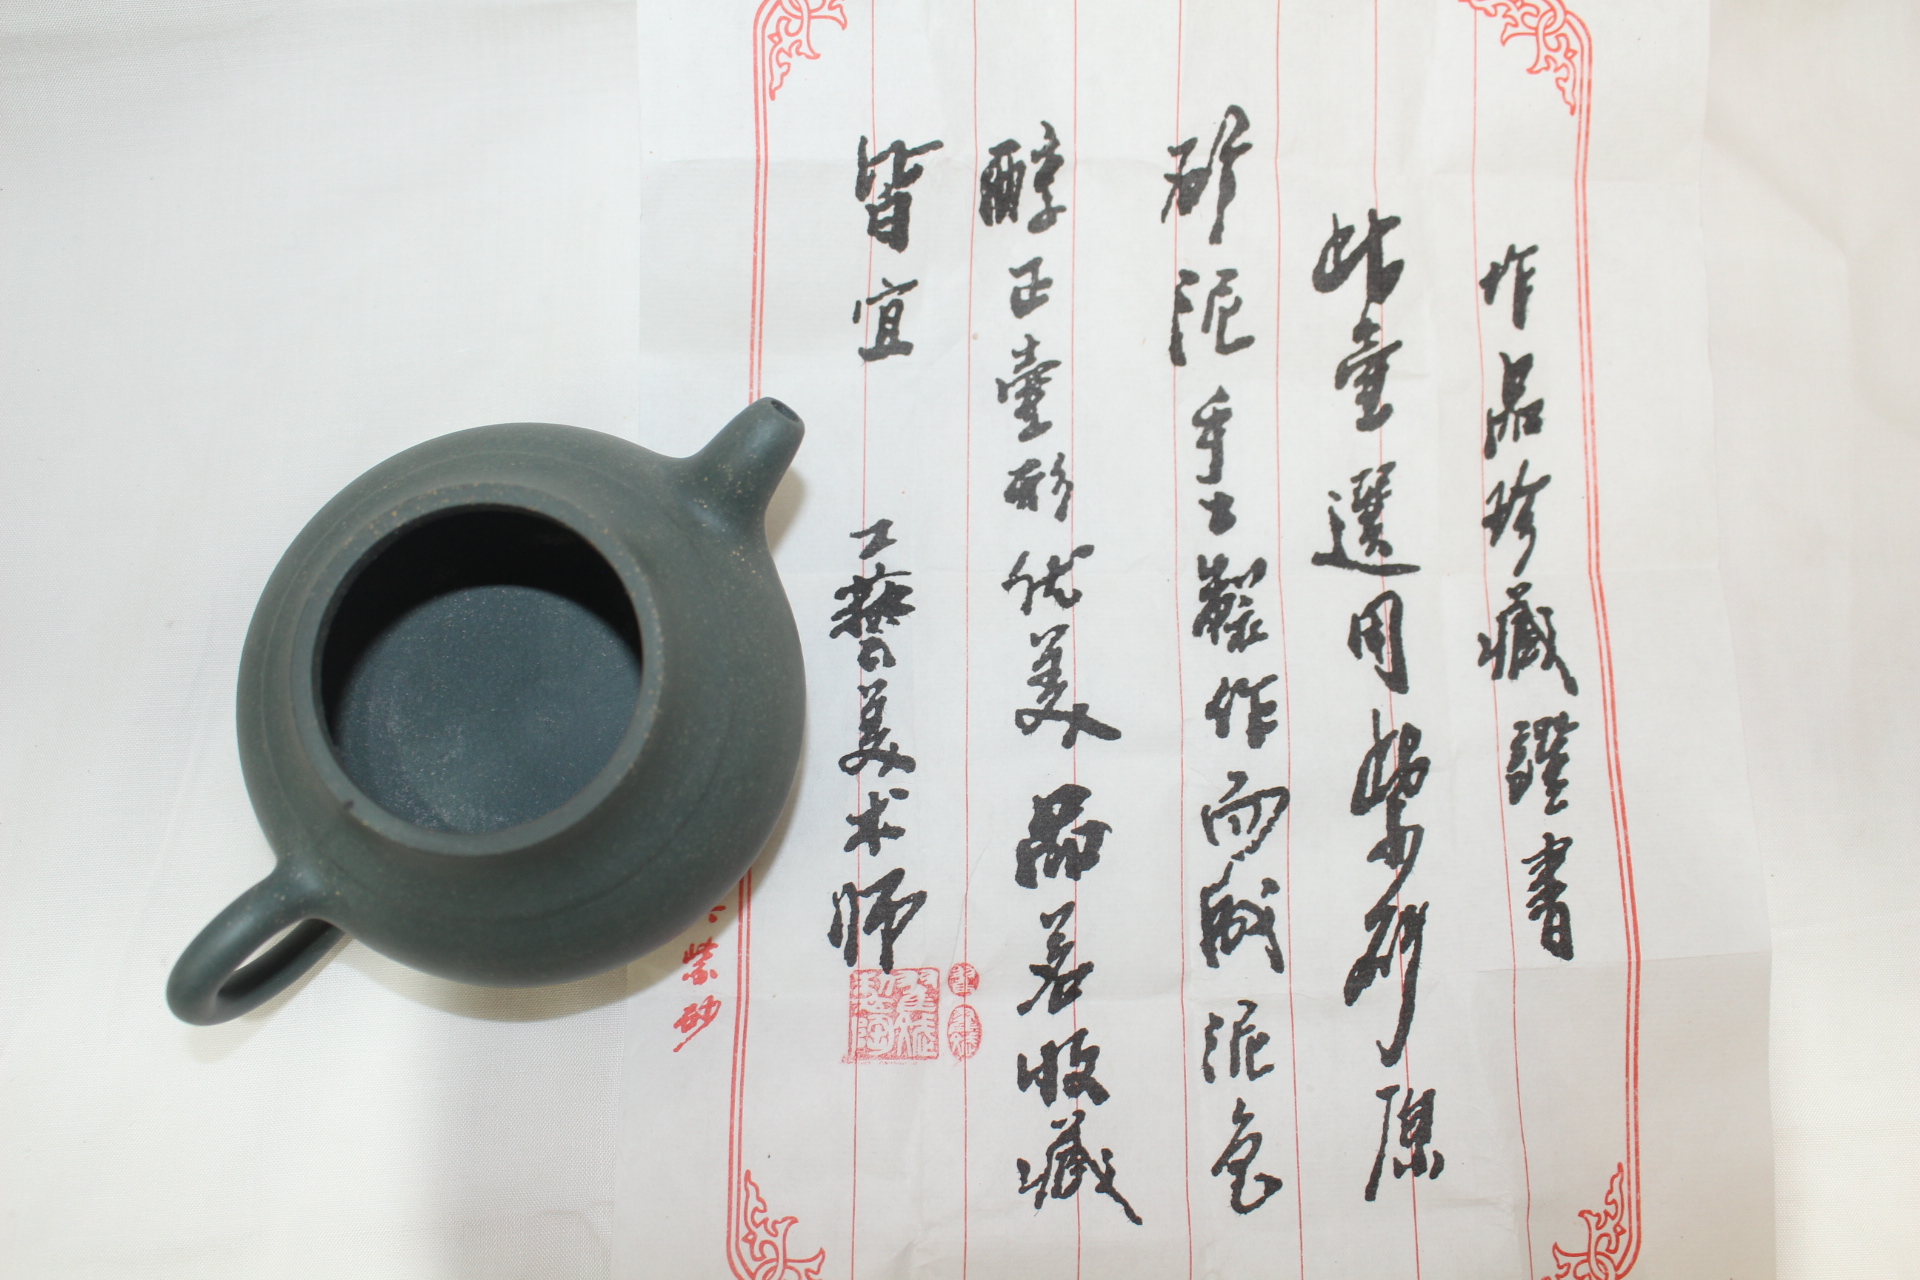 作品珍藏證書
此壺選用紫砂原
砂泥手工製作而成泥色
醇正壺形优美品茗收藏
皆宜 工藝美术师
紫砂